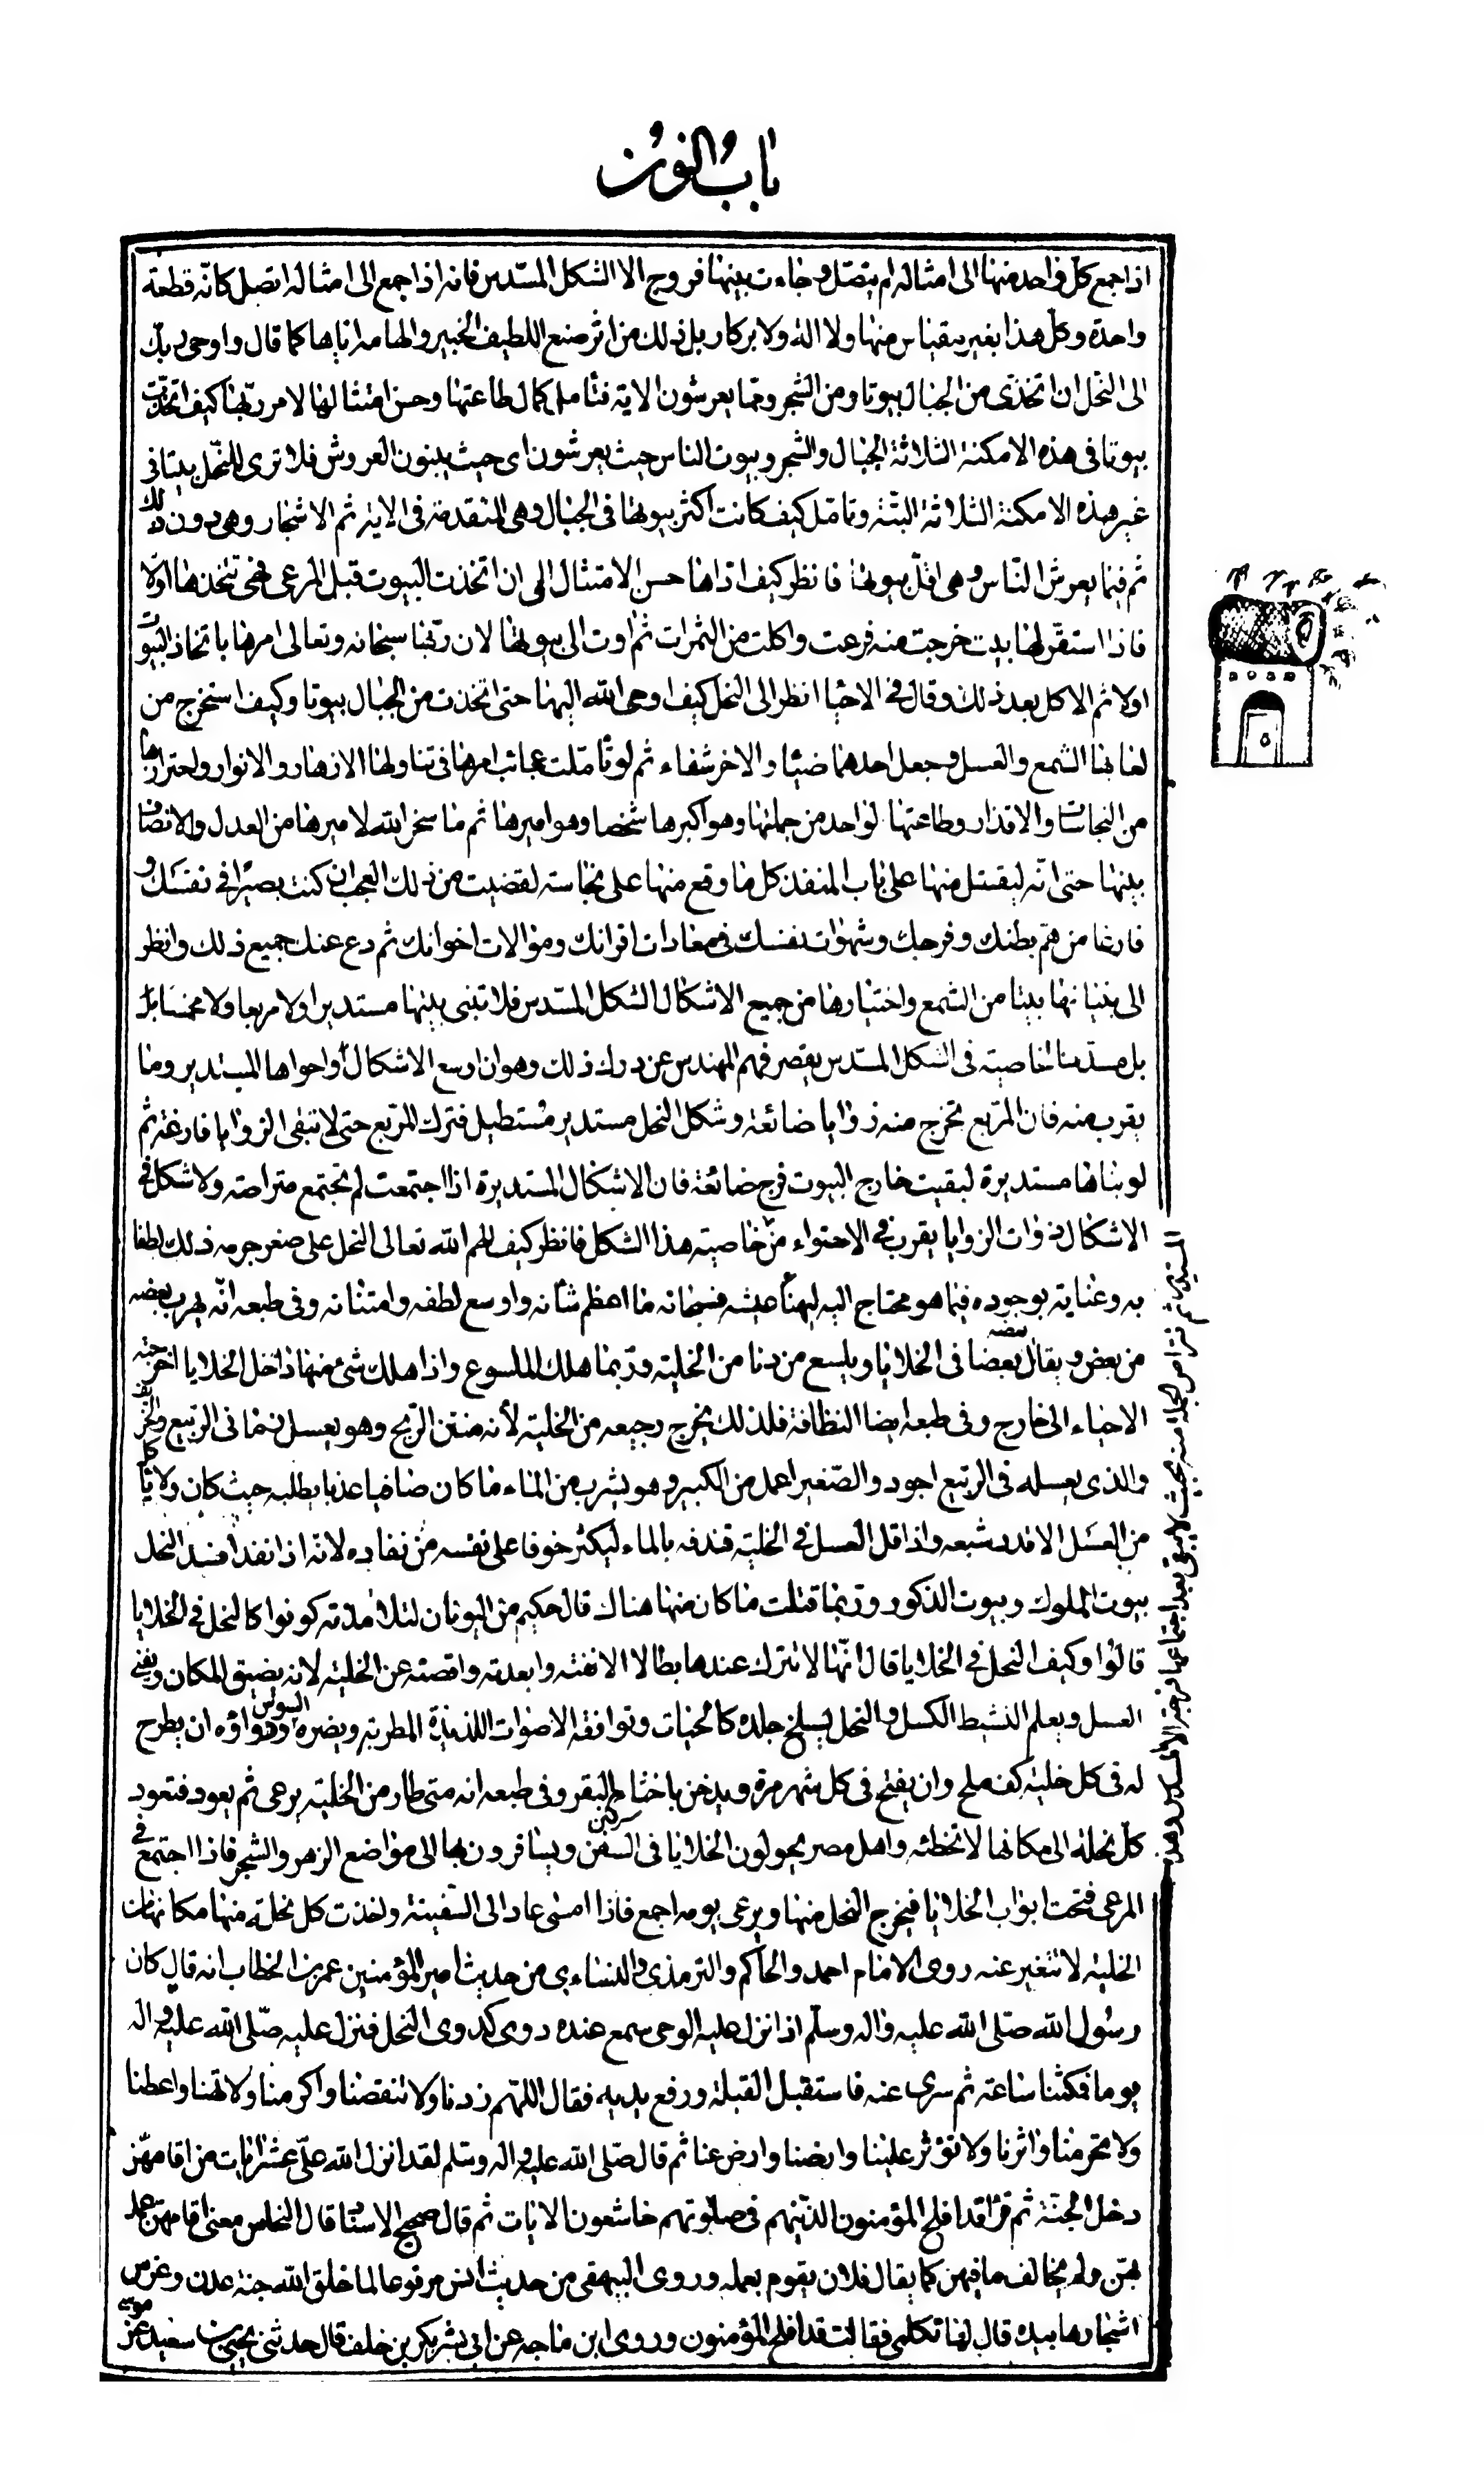 باب النون
اذا جمع كل واحد منها الى امثاله لم يتصل وجاءت بينها فروج الا الشكل المسدس فانه اذا جمع الى امثاله اتصل كانه قطعة
واحدة وكل هذا بغير مقياس منها ولا الة ولا بركار بل ذلك من اثر صنع اللطيف الخبير والهامه اياها كما قال واوحى ربك
الى النحل ان اتخذى من الجبال بيوتا ومن الشجر ومما يعرشون الاية فتامل كمال طاعتها وحسن امتثالها لامر ربها كيف اتخذت
بيوتا فى هذه الامكنة الثلاثة الجبال والشجر وبيوت الناس حيث يعرشون اى حيث يبنون العروش فلا ترى للنحل بيتا فى
غير هذه الامكنة الثلاثة البتة وتامل كيف كانت اكثر بيوتها فى الجبال وهى المتقدمة فى الاية ثم الاشجار وهى دون ذلك
ثم فيما يعرش الناس وهى اقل بيوتها فانظر كيف اداها حسن الامتثال الى ان اتخذت البيوت قبل المرعى فهى تتخذها اولا
فاذا استقر لها بيت خرجت منه فرعت واكلت من الثمرات ثم اوت الى بيوتها لان ربها سبحانه وتعالى امرها باتخاذ البيوت
اولا ثم الاكل بعد ذلك وقال فى الاحيا انظر الى النحل كيف اوحى الله اليها حتى اتخذت من الجبال بيوتا وكيف استخرج من
لعابها الشمع والعسل وجعل احدهما ضيا والاخر شفاء ثم لو تاملت عجائب امرها فى تناولها الازهار والانوار واحترازها
من النجاسات والاقذار وطاعتها لواحد من جملتها وهو اكبرها شخصا وهو اميرها ثم ما سخر الله لاميرها من العدل والانصاف
بينها حتى انه ليقتل منها على باب المنفذ كل ما وقع منها على نجاسة لقضيت من ذلك العجب ان كنت بصيرا فى نفسك و
فارغا من هم بطنك وفرجك وشهوات نفسك فى معادات اقرانك وموالات اخوانك ثم دع عنك جميع ذلك وانظر
الى بنيانها بيتا من الشمع واختيارها من جميع الاشكال الشكل المسدس فلا تبنى بيتها مستديرا ولا مربعا ولا مخمسا بل
بل مسدسا لخاصية فى الشكل المسدس يقصر فهم المهندس عن درك ذلك وهو ان اوسع الاشكال واحواها المستدير وما
يقرب منه فان المربع تخرج منه زوايا ضائعة وشكل النحل مستدير مستطيل فترك المربع حتى لا تبقى الزوايا فارغة ثم
لو بناها مستديرة لبقيت خارج البيوت فرج ضائعة فان الاشكال المستديرة اذا اجتمعت لم تجتمع متراصة ولا شكل فى
الاشكال ذوات الزوايا يقرب فى الاحتواء من
المستدير ثم تتراص الجملة منه بحيث لا يبقى بعد اجتماعها فرجة الا المسدس وهذه
خاصية هذا الشكل فانظر كيف الهم الله تعالى النحل على صغر جرمه ذلك لطفا
به وعناية بوجوده فيما هو محتاج اليه ليهنأ عيشه فسبحانه ما اعظم شانه واوسع لطفه وامتنانه وفى طبعه انه يهرب بعضه
من بعض ويقاتل بعضه بعضا فى الخلايا ويلسع من دنا من الخلية وربما هلك الملسوع واذا هلك شئ منها داخل الخلايا اخرجته
الاحياء الى خارج وفى طبعه ايضا النظافة فلذلك يخرج رجيعه من الخلية لأنه منتن الريح وهو يعسل زمانى الربيع والخريف
والذى يعسله فى الربيع اجود والصغير اعمل من الكبير وهو يشرب من الماء ما كان صافيا عذبا يطلبه حيث كان ولا ياكل
من العسل الا قدر شبعه واذا قل العسل فى الخلية قذفه بالماء ليكثر خوفا على نفسه من نفاده لانه اذا نفد افسد النحل
بيوت الملوك وبيوت الذكور وربما قتلت ما كان منها هناك قال حكيم من اليونان لتلامذته كونوا كالنحل فى الخلايا
قالوا وكيف النحل فى الخلايا قال انها لا تترك عندها بطالا الا نفته وابعدته واقصته عن الخلية لانه يضيق المكان ويفنى
العسل ويعلم النشيط الكسل والنحل يسلخ جلده كالحيات وتوافقه الاصوات اللذيذة المطربة ويضره السوس ودواؤه ان يطرح
له فى كل خلية كف ملح وان يفتح فى كل شهر مرة ويدخن باخثاء البقر وفى طبعه انه متى طار من الخلية يرعى ثم يعود فتعود
سركين
كل نحلة الى مكانها لا تخطئه واهل مصر يحولون الخلايا فى السفن ويسافرون بها الى مواضع الزهر والشجر فاذا اجتمع فى
المرعى فتحت ابواب الخلايا فيخرج النحل منها ويرعى يومه اجمع فاذا امسى عاد الى السفينة واخذت كل نحلة منها مكانها من
الخلية لا تتغير عنه روى الامام احمد والحاكم والترمذى والنساءى من حديث امير المؤمنين عمر بن الخطاب انه قال كان
رسول الله صلى الله عليه واله وسلم اذا نزل عليه الوحى سمع عنده دوى كدوى النحل فنزل عليه صلى الله عليه واله
يوما فمكثنا ساعة ثم سرى عنه فاستقبل القبلة ورفع يديه فقال اللهم زدنا ولا تنقصنا واكرمنا ولا تهنا واعطنا
ولا تحرمنا واثرنا ولا تؤثر علينا وارضنا وارض عنا ثم قال صلى الله عليه واله وسلم لقد انزل الله على عشر ايات من اقامهن
دخل الجنة ثم قرأ قد افلح المؤمنون الذينهم فى صلوتهم خاشعون الايات ثم قال صحيح الاسناد قال النحاس معنى اقامهن عمل
بهن ولم يخالف ما فيهن كما يقال فلان يقوم بعمله وروى البيهقى من حديث انس مرفوعا لما خلق الله جنة عدن وغرس
اشجارها بيده قال لها تكلمى فقالت قد افلح المؤمنون وروى ابن ماجه عن ابى بشر بكر بن خلف قال حدثنى يحيى بن سعيد عن موسى